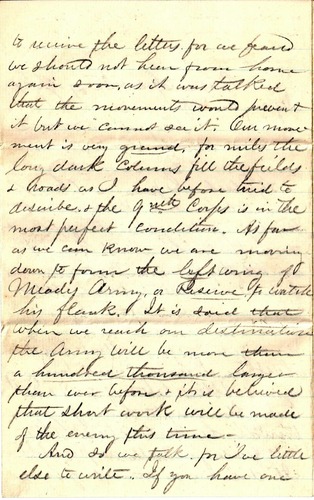 to receive the letters, for we feared
we should not hear from home
again soon, as it was talked
that the movements would prevent
it but we cannot see it. Our move
ment is very grand, for miles the
long dark Columns fill the fields
& roads as I have before tried to
describe. & the 9th Corps is in the
most perfect Condition. As far
as we can know we are moving
down to form the left wing of
Meades Army, or Reserve to watch
his flank. It is said that
when we reach our destination
the Army will be more than
a hundred thousand larger
than ever before & it is believed
that short work will be made
of the enemy this time -
And so we talk for I've little
else to write. If you have one